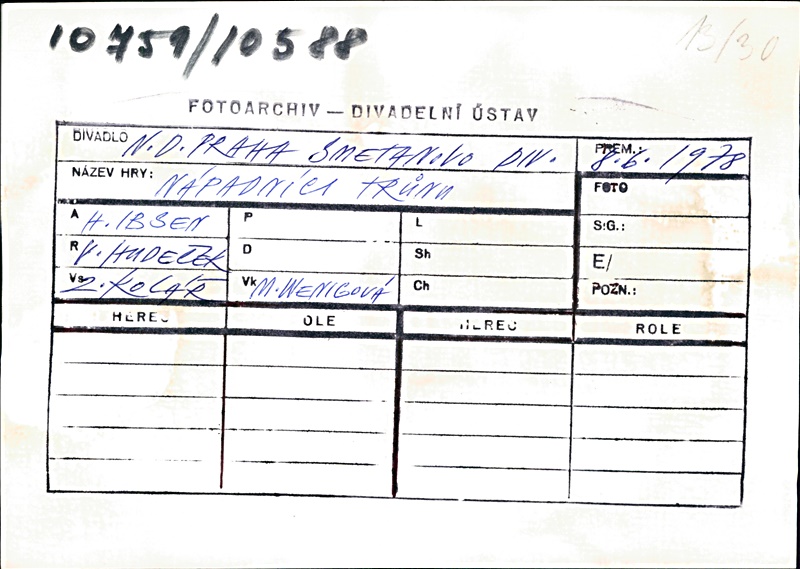 10759/10588
13/30
FOTOARCHIV — DIVADELNÍ ÚSTAV
DIVADLO N.D. PRAHA SMETANOVO DIV. PREM.: 8.6.1978
NÁZEV HRY: NÁPADNÍCI TRŮNU FOTO
A H. IBSEN P L S:G.:
R V. HUDEČEK D Sh E/
Vs Z. KOLÁŘ Vk M. WENIGOVÁ Ch POZN.:
HEREC OLE HEREC ROLE